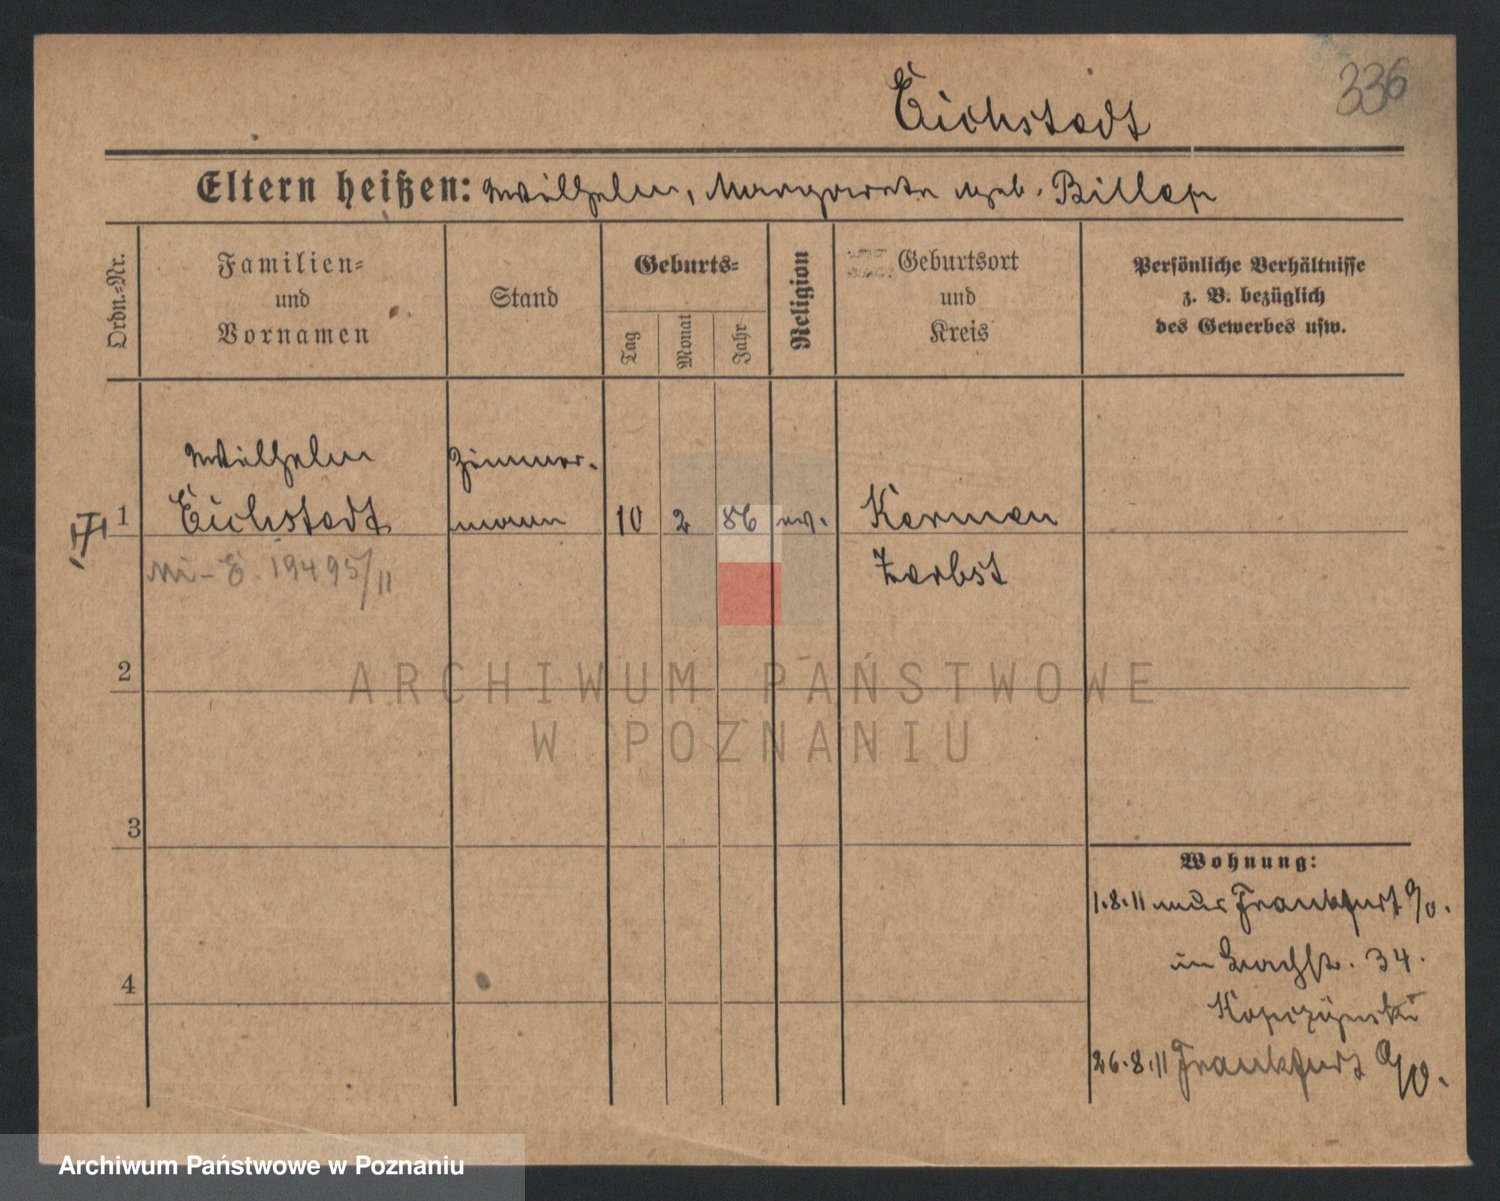 336
Eichstedt
Eltern heißen: Wilhelm, Margarete geb. Billep
Ordn.-Nr.
Familien-
und
Vornamen
Stand
Geburts-
Tag
Monat
Jahr
Religion
Geburtsort
und
Kreis
Persönliche Verhältnisse
z. B. bezüglich
des Gewerbes usw.
Wilhelm Zimmer-
1 Eichstedt mann 10 2 86 ev. Kermen
19495/11 Zerbst
2
ARCHIWUM PAŃSTWOWE
W POZNANIU
3
Wohnung:
1.8.11 aus Frankfurt a/O.
in 34.
4
Kopczynski
26.8.11 Frankfurt a/O.
Archiwum Państwowe w Poznaniu